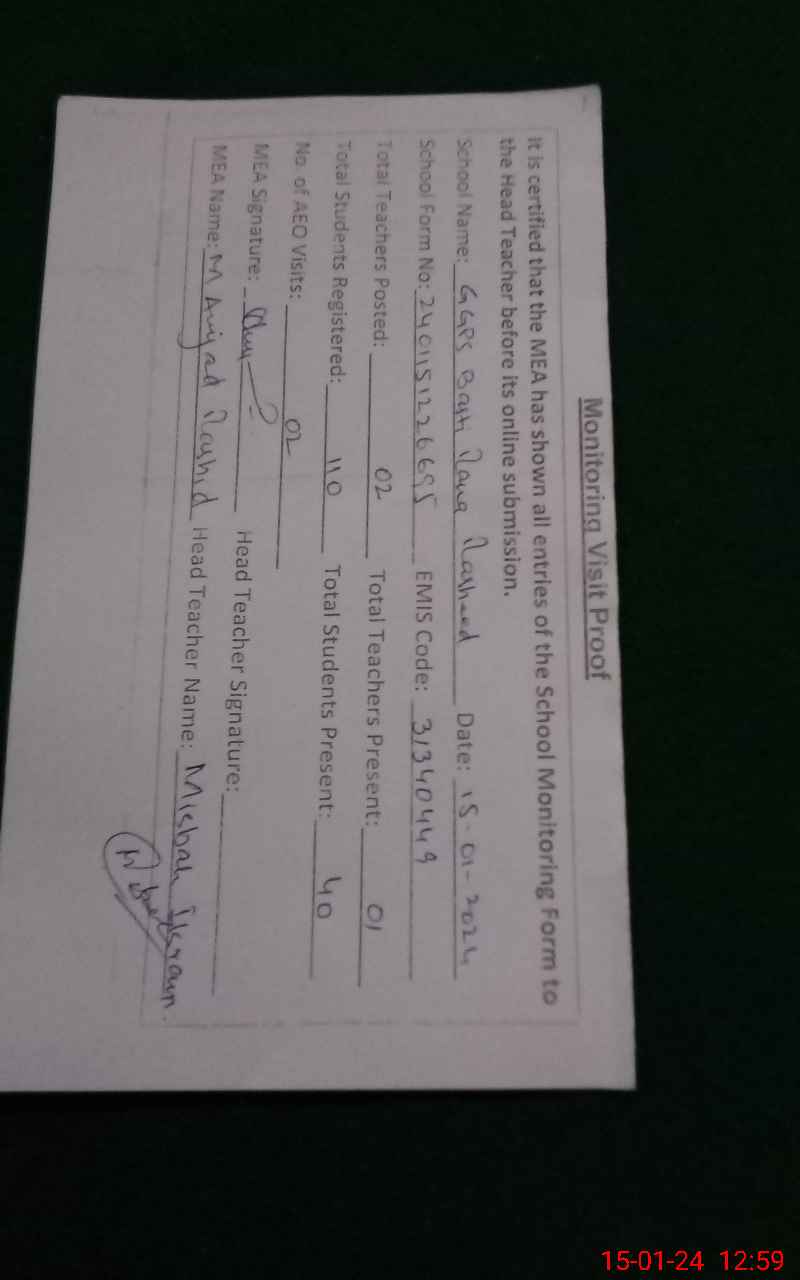 Monitoring Visit Proof
It is certified that the MEA has shown all entries of the School Monitoring Form to
the Head Teacher before its online submission.
School Name: GGPS Basti Rana Rasheed Date: 15-01-2024
School Form No: 2401151226695 EMIS Code: 31340449
Total Teachers Posted: 02 Total Teachers Present: 01
Total Students Registered: 110 Total Students Present: 40
No. of AEO Visits: 02
MEA Signature: Head Teacher Signature:
MEA Name: M Amjad Rashid Head Teacher Name: Misbah Ikram.
15-01-24 12:59